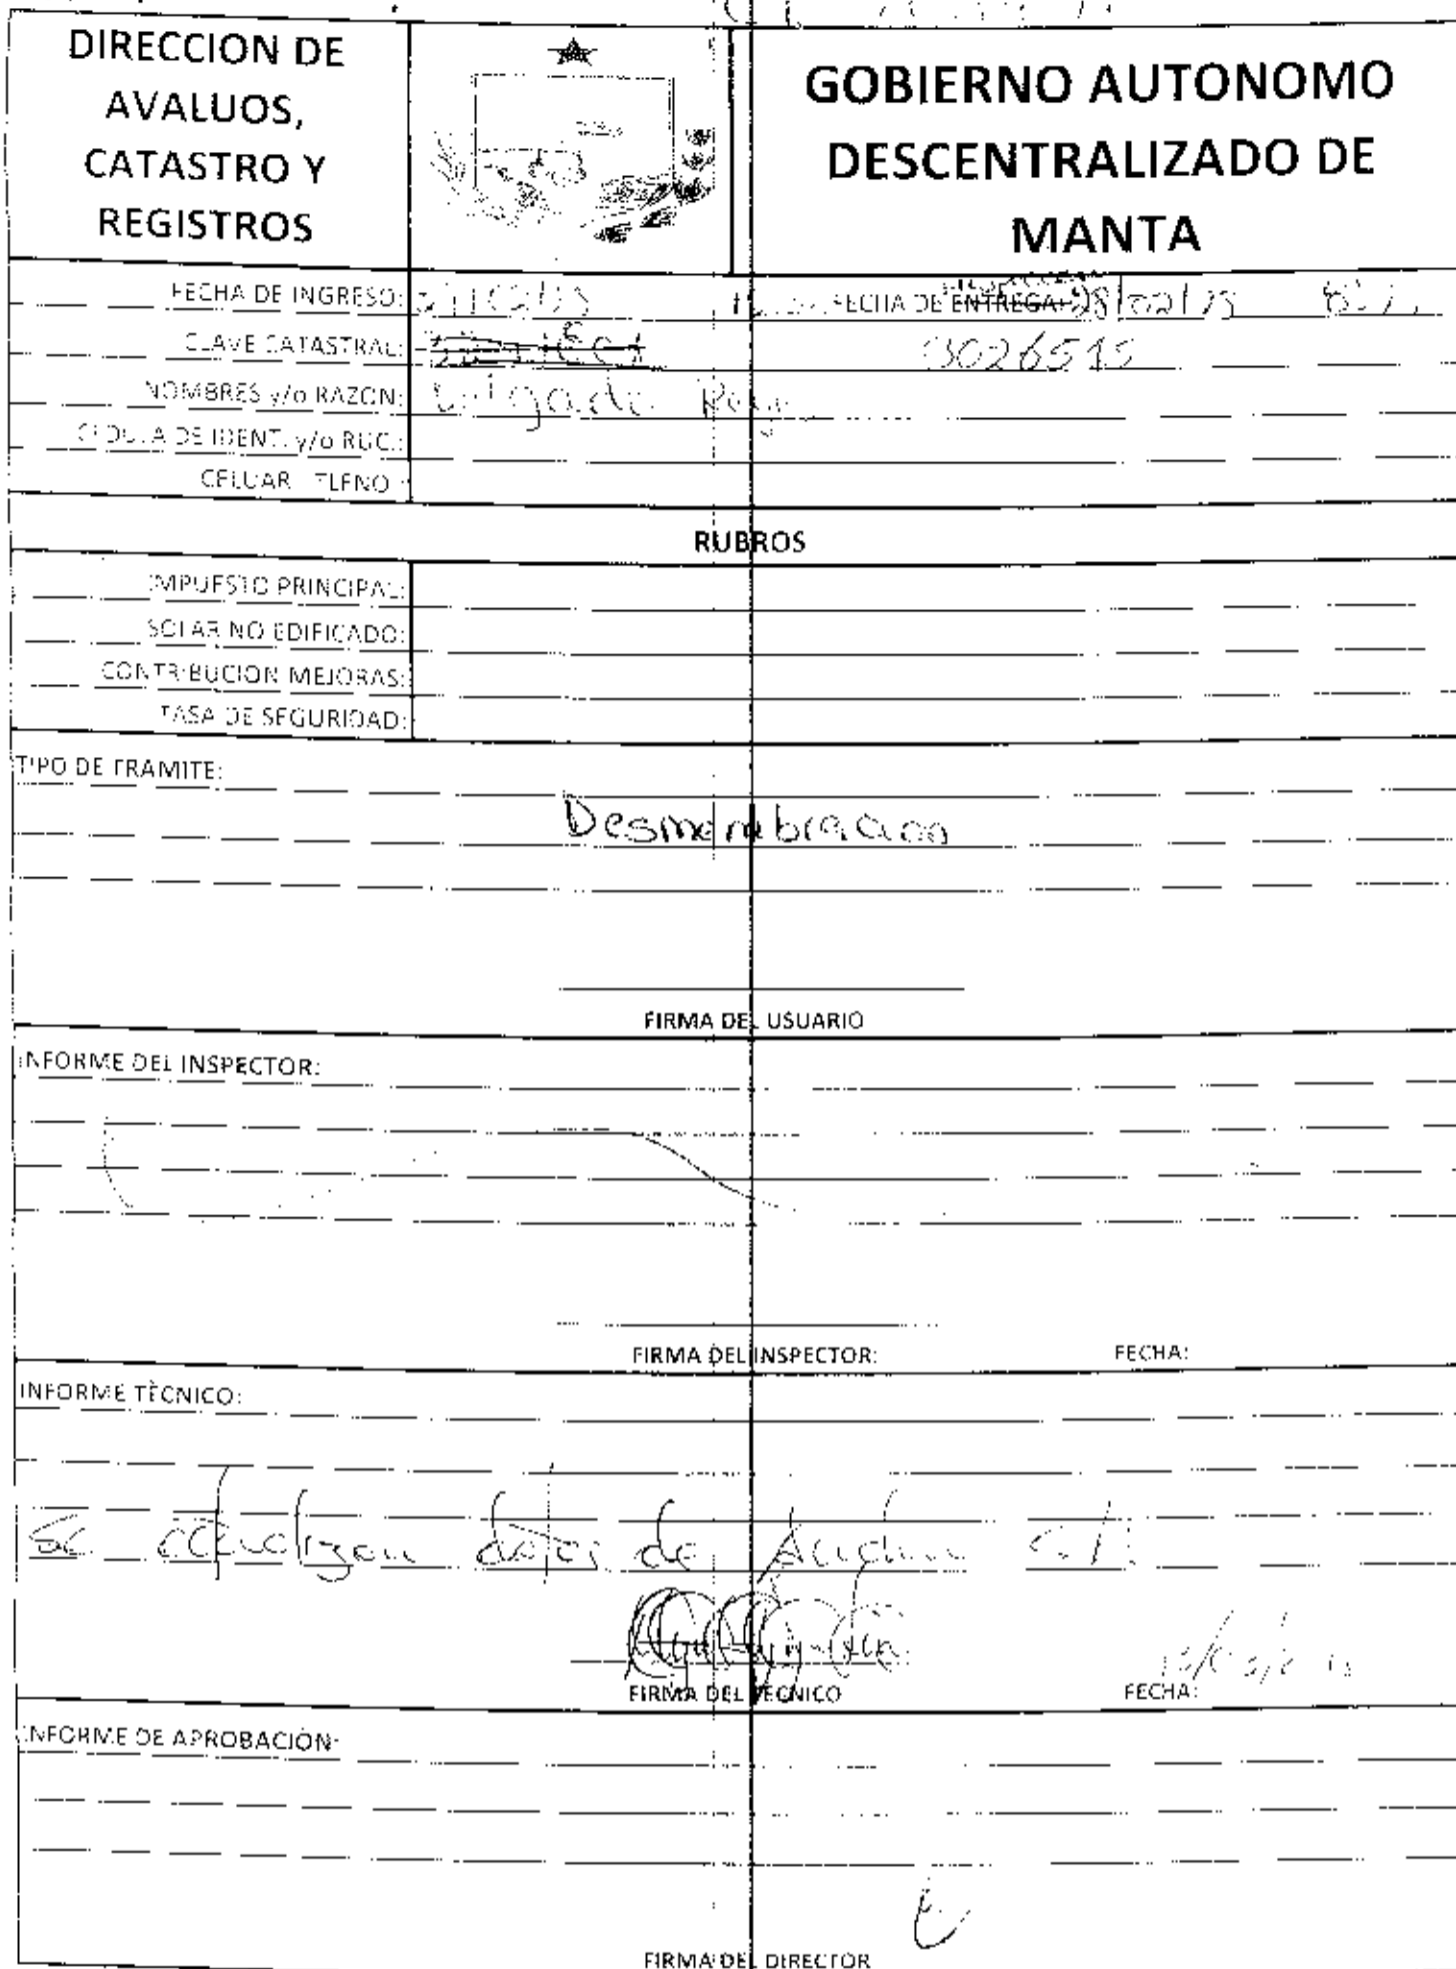 DIRECCION DE
AVALUOS,
CATASTRO Y
REGISTROS
GOBIERNO AUTONOMO
DESCENTRALIZADO DE
MANTA
FECHA DE INGRESO:
FECHA DE ENTREGA: 28/02/13
CLAVE CATASTRAL: 3026515
NOMBRES y/o RAZON: Delgado
CEDULA DE IDENT. y/o RUC.:
CELUAR - TLFNO :
RUBROS
IMPUESTO PRINCIPAL:
SOLAR NO EDIFICADO:
CONTRIBUCION MEJORAS:
TASA DE SEGURIDAD:
TIPO DE TRAMITE:
Desmembracion
FIRMA DEL USUARIO
INFORME DEL INSPECTOR:
FIRMA DEL INSPECTOR: FECHA:
INFORME TÈCNICO:
Se actualizan datos de
FIRMA DEL TECNICO FECHA:
INFORME DE APROBACIÓN:
FIRMA DEL DIRECTOR